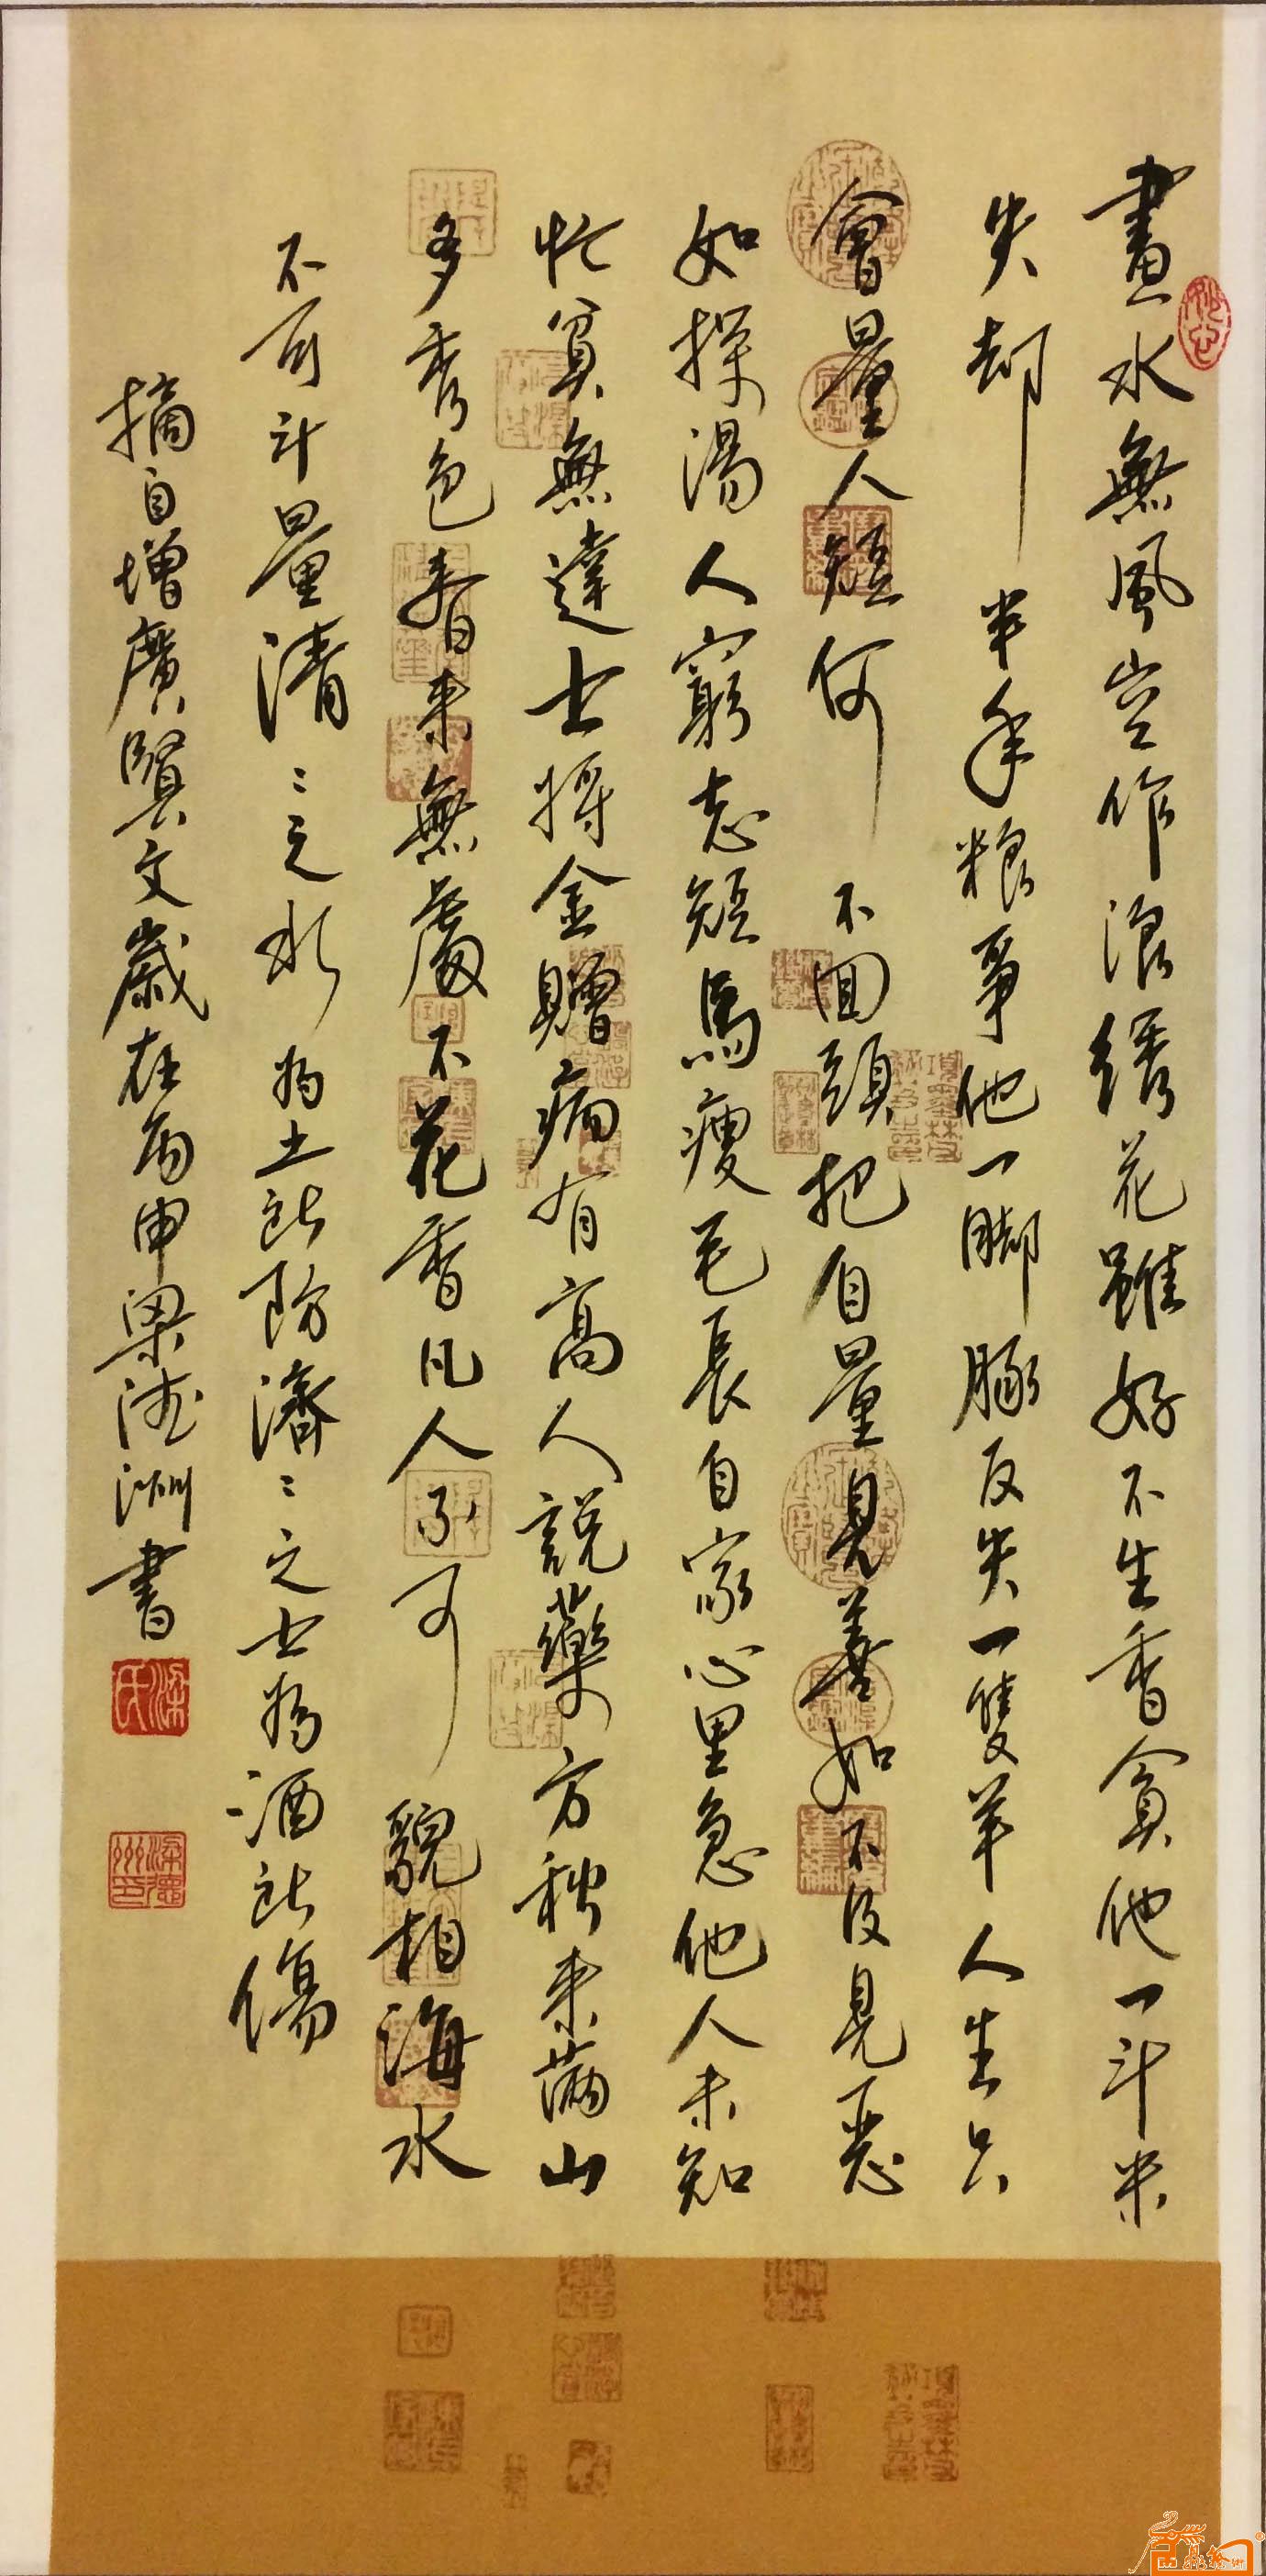 畫水無風空作浪綉花雖好不生香貪他一斗米
失却半年粮爭他一脚豚反失一隻羊人生只
會量人短何不回頭把自量見善如不及見惡
如探湯人窮志短馬瘦毛長自家心里急他人未知
忙貧無達士將金贈病有高人說藥方秋来滿山
多秀色春来無處不花香凡人不可貌相海水
不可斗量清々之水為土所防濟々之士為酒所傷
摘自增廣賢文歲在丙申梁德洲書
梁氏
梁德州印